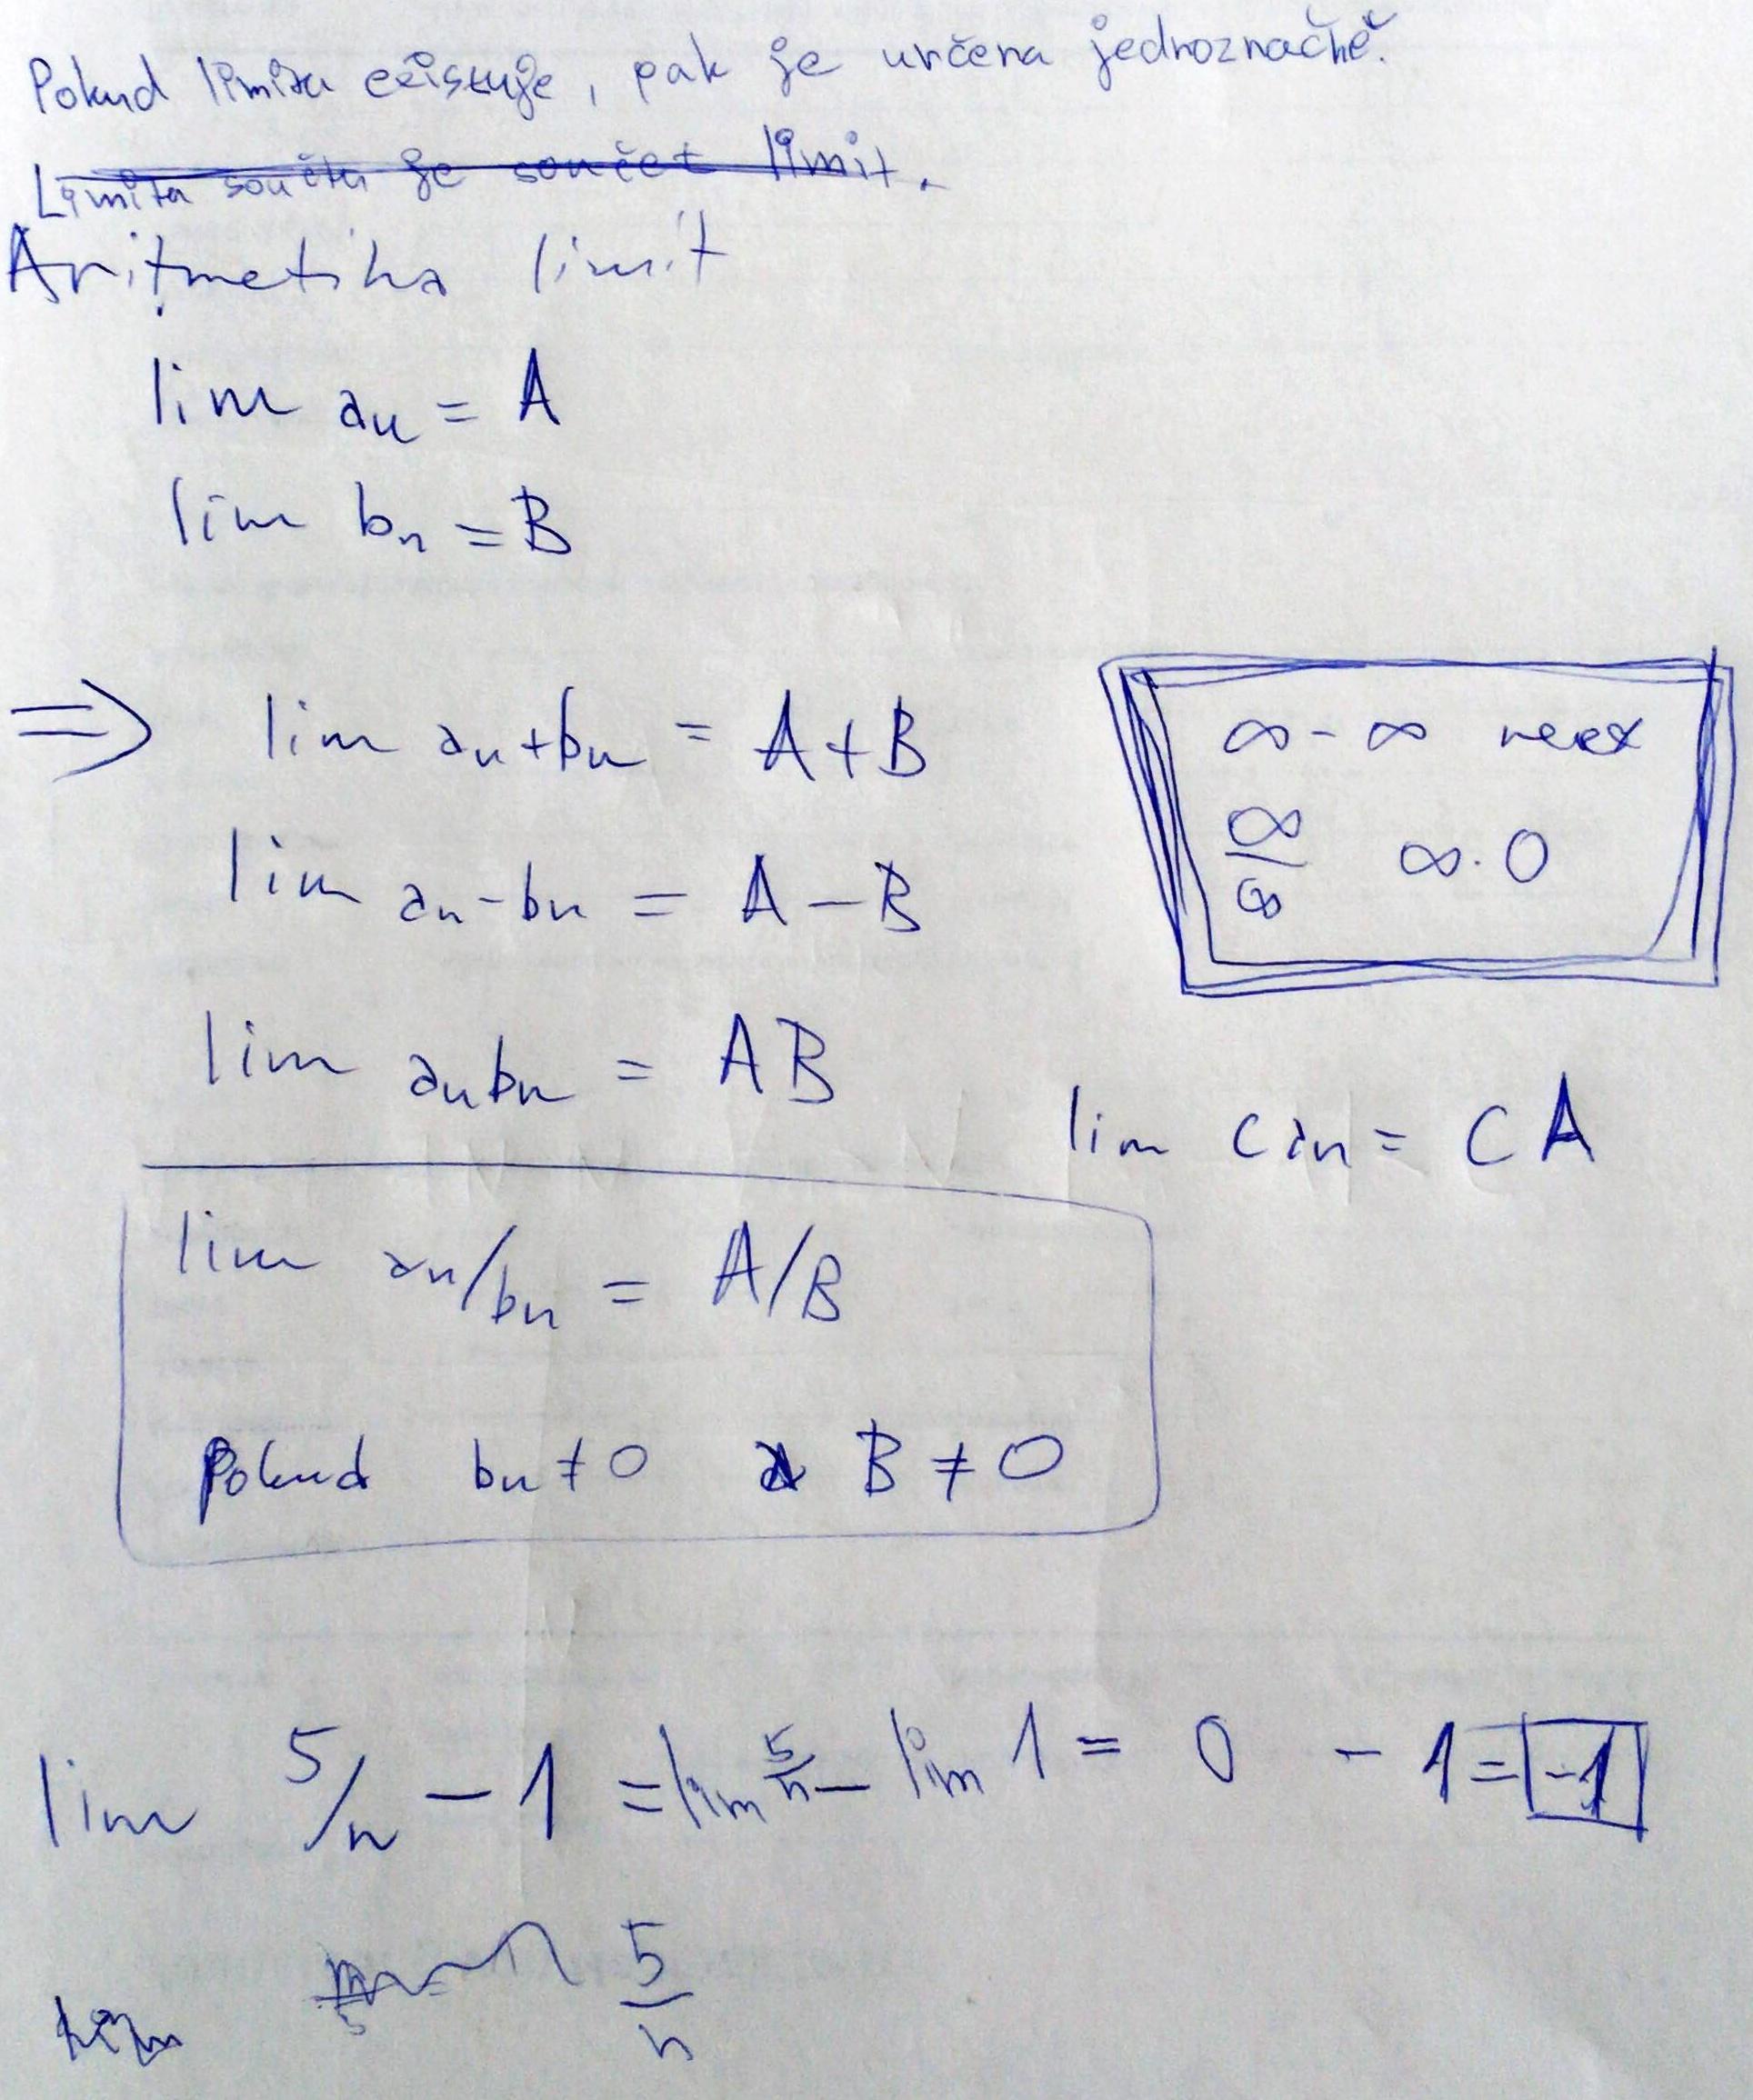 Pokud limita existuje, pak je určena jednoznačně.
Limita součtu je součet limit.
Aritmetika limit
lim an = A
lim bn = B
⇒ lim an+bn = A+B
∞ - ∞ neex
lim an-bn = A-B
∞/∞ ∞·0
lim anbn = AB
lim c an = CA
lim an/bn = A/B
Pokud bn≠0 a B≠0
lim 5/n - 1 = lim 5/n - lim 1 = 0 - 1 = -1
5/n